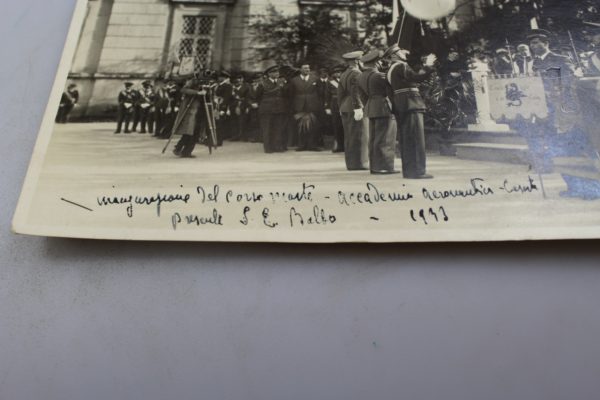 inaugurazione del corso - accademia aeronautica - Caserta
presente S. E. Balbo - 1933